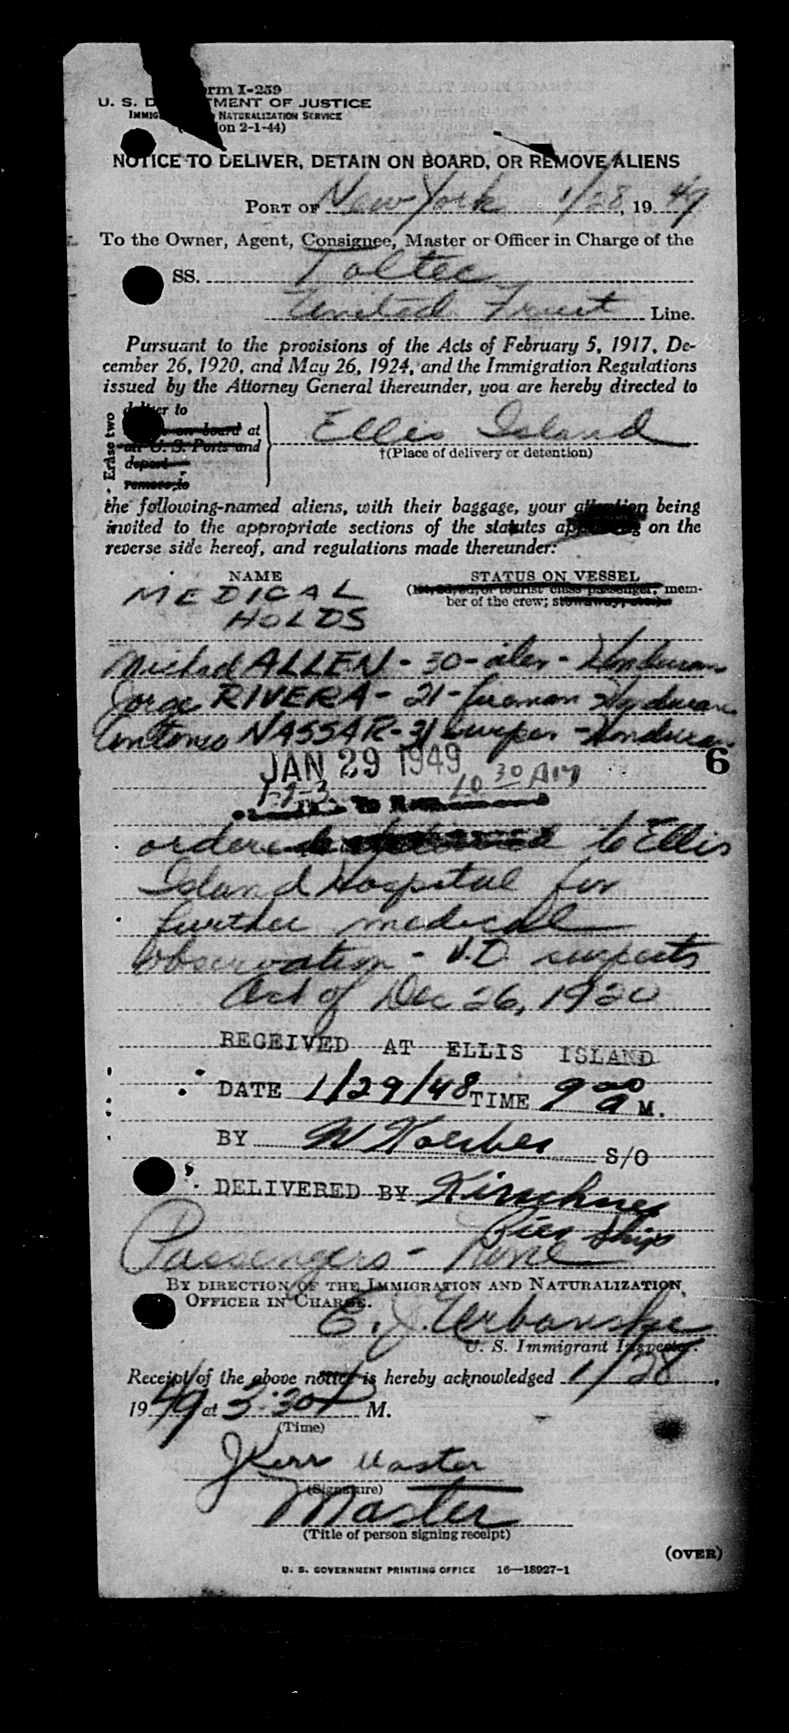 Form I-259
U. S. DEPARTMENT OF JUSTICE
IMMIGRATION AND NATURALIZATION SERVICE
(Edition 2-1-44)
NOTICE TO DELIVER, DETAIN ON BOARD, OR REMOVE ALIENS
PORT OF New York 1/28, 19 49
To the Owner, Agent, Consignee, Master or Officer in Charge of the
SS. Toltec
United Fruit Line.
Pursuant to the provisions of the Acts of February 5, 1917, De-
cember 26, 1920, and May 26, 1924, and the Immigration Regulations
issued by the Attorney General thereunder, you are hereby directed to
Erase two
deliver to
on board at
U. S. Ports and
deport
remove to
Ellis Island
†(Place of delivery or detention)
the following-named aliens, with their baggage, your attention being
invited to the appropriate sections of the statutes appearing on the
reverse side hereof, and regulations made thereunder:
NAME STATUS ON VESSEL
MEDICAL (1st, 2d, 3d, or tourist class passenger, mem-
HOLDS ber of the crew; stowaway, etc.)
Michael ALLEN - 30 - oiler - Honduran
Jorge RIVERA - 21 - fireman Honduran
Antonio NASSAR - 31 wiper - Honduran
JAN 29 1949 6
1-2-3 10 30 AM
ordered to Ellis
Island Hospital for
further medical
observation - V.D. suspects
Act of Dec 26, 1920
RECEIVED AT ELLIS ISLAND
DATE 1/29/48 TIME 9 00 a M.
BY S/O
DELIVERED BY Kirschner
Passengers - None
BY DIRECTION OF THE IMMIGRATION AND NATURALIZATION
OFFICER IN CHARGE.
E. J. Urbanski
U. S. Immigrant Inspector.
Receipt of the above notice is hereby acknowledged 1/28,
19 49 at 3:30 P M.
(Time)
J Kerr Master
(Signature)
Master
(Title of person signing receipt)
(OVER)
U. S. GOVERNMENT PRINTING OFFICE 16—18927-1